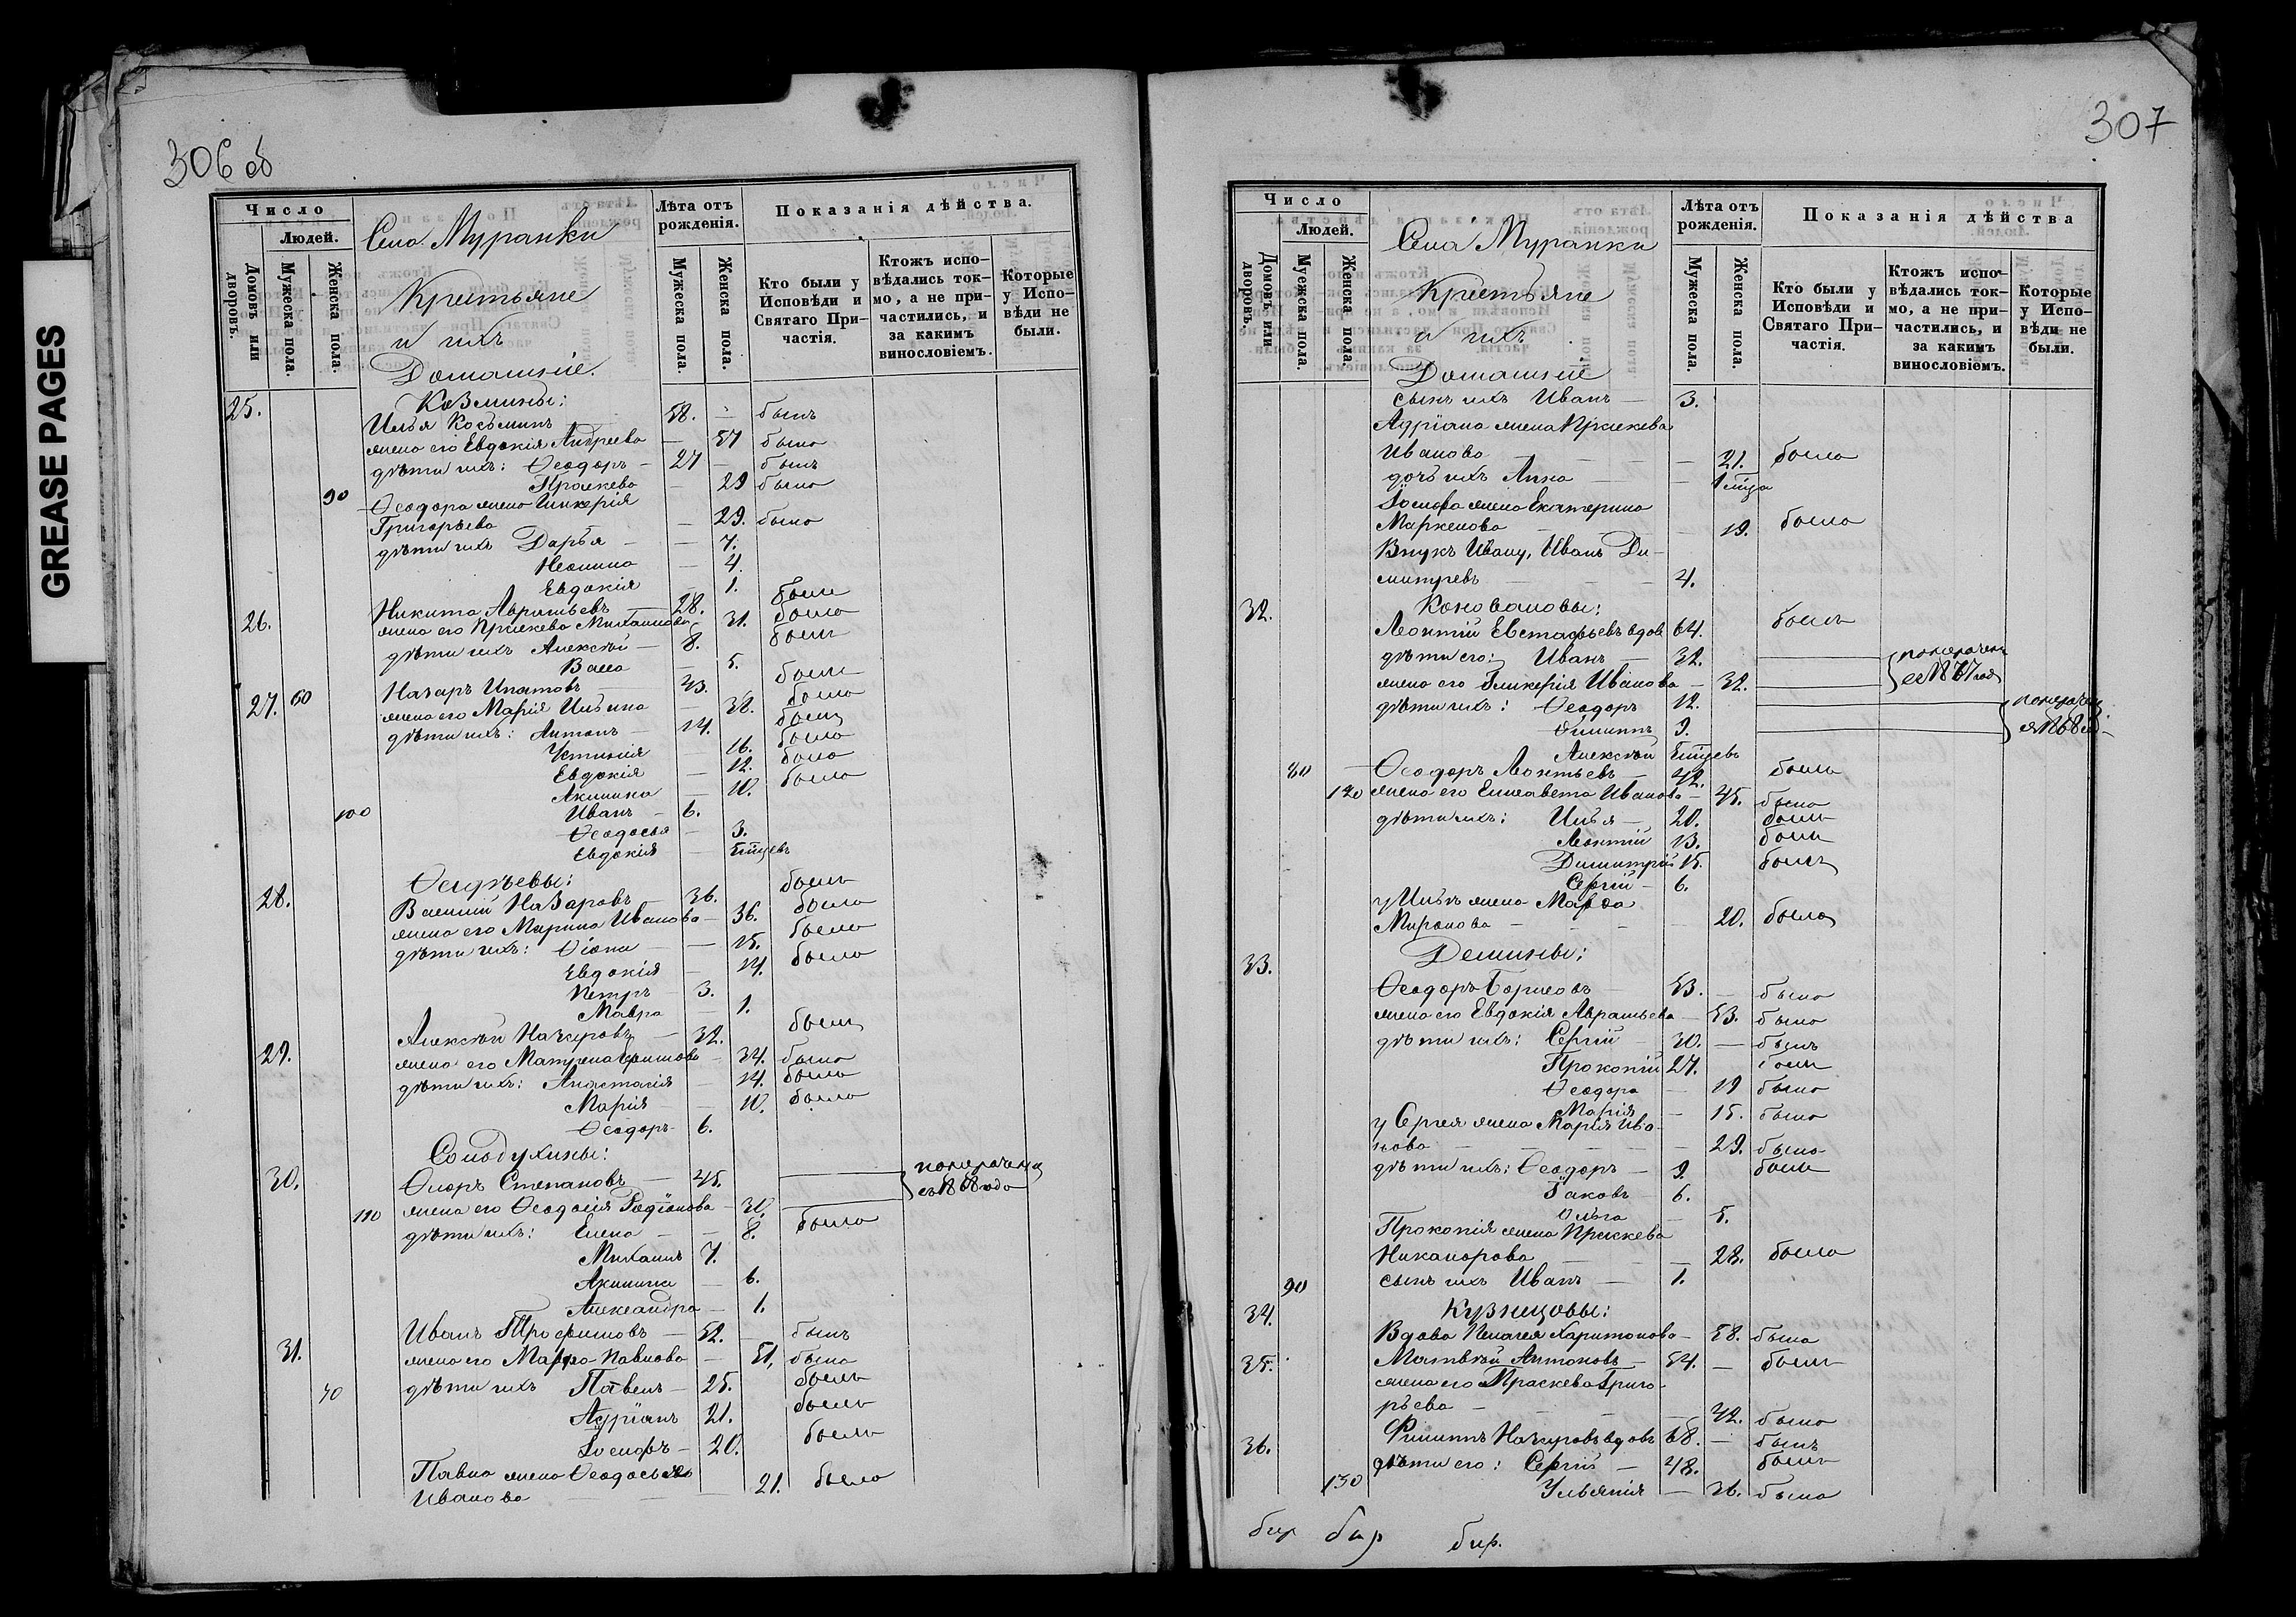 GREASE PAGES
306 об
Число
Людей.
Домовъ или дворовъ.
Мужеска пола.
Женска пола.
Села Муранки
Крестьяне
и ихъ
Домашніе.
Лѣта отъ рожденія.
Мужеска пола.
Женска пола.
Показанія дѣйства.
Кто были у Исповѣди и Святаго Причастія.
Ктожъ исповѣдались токмо, а не причастились, и за какимъ винословіемъ.
Которые у Исповѣди не были.
Козмины:
25. Илья Косьминъ 58. — былъ
жена его Евдокія Андреева — 57 была
дѣти ихъ: Ѳеодоръ — 27 — былъ
90 Праскева — 29 была
Ѳеодора жена Гликерія
Григорьева — 29. была
дѣти ихъ Дарья — — 7.
Неонила — 4.
Евдокія — 1.
26. Никита Авраамьевъ — 28. былъ
жена его Праскева Михаилова 31. была
дѣти ихъ Алексѣй — 8. былъ
Васса — 5.
27. 60 Назаръ Ипатовъ 43. былъ
жена его Марія Ильина — 38. была
дѣти ихъ: Антонъ — 14. былъ
Устинія 16. была
Евдокія — 12. была
Акилина — 10. была
100 Иванъ — 6.
Ѳеодосья — 3.
Евдокія — 6 мѣцевъ
Ѳадѣевы:
28. Василій Назаровъ — 36. былъ
жена его Марина Иванова — 36. была
дѣти ихъ: Ѳіона — — 15. была
Евдокія — 14. была
Петръ — 3.
Мавра — 1.
29. Алексѣй Назаровъ — 32. былъ
жена его Матрена — 34. была
дѣти ихъ: Анастасія — 14. была
Марія — — 10. была
Ѳеодоръ — 6.
Солодухины:
30. Ѳлоръ Степановъ — 45.
110 жена его Ѳеодосія Родіонова — 30.
дѣти ихъ: Елена — — 8. была
Михаилъ 7.
Акилина — 6.
Александра — 1.
31. Иванъ Трофимовъ — 52. — былъ
жена его Марѳа Павлова — 51, была
70 дѣти ихъ Павелъ — 25. былъ
Адріанъ 21. былъ
Іосифъ — 20. былъ
Павла жена Ѳеодосья
Иванова — — — 21. была
307
Число
Людей.
Домовъ или дворовъ.
Мужеска пола.
Женска пола.
Села Муранки
Крестьяне
и ихъ
Домашніе
Лѣта отъ рожденія.
Мужеска пола.
Женска пола.
Показанія дѣйства
Кто были у Исповѣди и Святаго Причастія.
Ктожъ исповѣдались токмо, а не причастились, и за какимъ винословіемъ.
Которые у Исповѣди не были.
сынъ ихъ Иванъ — 3.
Адріана жена Праскева
Иванова — — — 21. была
дочь ихъ Анна — — 1 мѣца
Іосифа жена Екатерина
Маркелова — — 19. была
Внукъ Ивану, Иванъ Ди-
митріевъ — — — 4.
32. Коноваловы:
Леонтій Евстафьевъ вдов 64. былъ
дѣти его: Иванъ — 32.
жена его Гликерія Иванова — 32.
дѣти ихъ: Ѳеодоръ 12.
Филиппъ 9.
Алексѣй 6 мѣцевъ
80 Ѳеодоръ Леонтьевъ — 42. былъ
120 жена его Елисавета Иванова — 45. была
дѣти ихъ: Илья — 20. былъ
Леонтій 13. былъ
Димитрій 15. былъ
Сергій — 6.
у Ильи жена Марѳа
Миронова — — — 20. была
33. Демины:
Ѳеодоръ Борисовъ 53. — былъ
жена его Евдокія Авраамьева — 53. была
дѣти ихъ: Сергій — 30. — былъ
Прокопій 27. былъ
Ѳеодора — 19 была
Марія — 15. была
у Сергея жена Марія Ива-
нова — — — 29. была
дѣти ихъ: Ѳеодоръ — 9. былъ
Іаковъ — 6.
Ольга — 5.
Прокопія жена Праскева
Никанорова — — — 28. была
90 сынъ ихъ Иванъ — 1.
34. Кузнецовы:
Вдова Пелагея Харитонова — 58. была
35. Матвѣй Антоновъ — 54. — былъ
жена его Праскева Григо-
рьева — — — 42. была
36. Филиппъ Назаровъ вдовъ 68. — былъ
дѣти его: Сергій — 48. былъ
130 Ульянія — 36. была